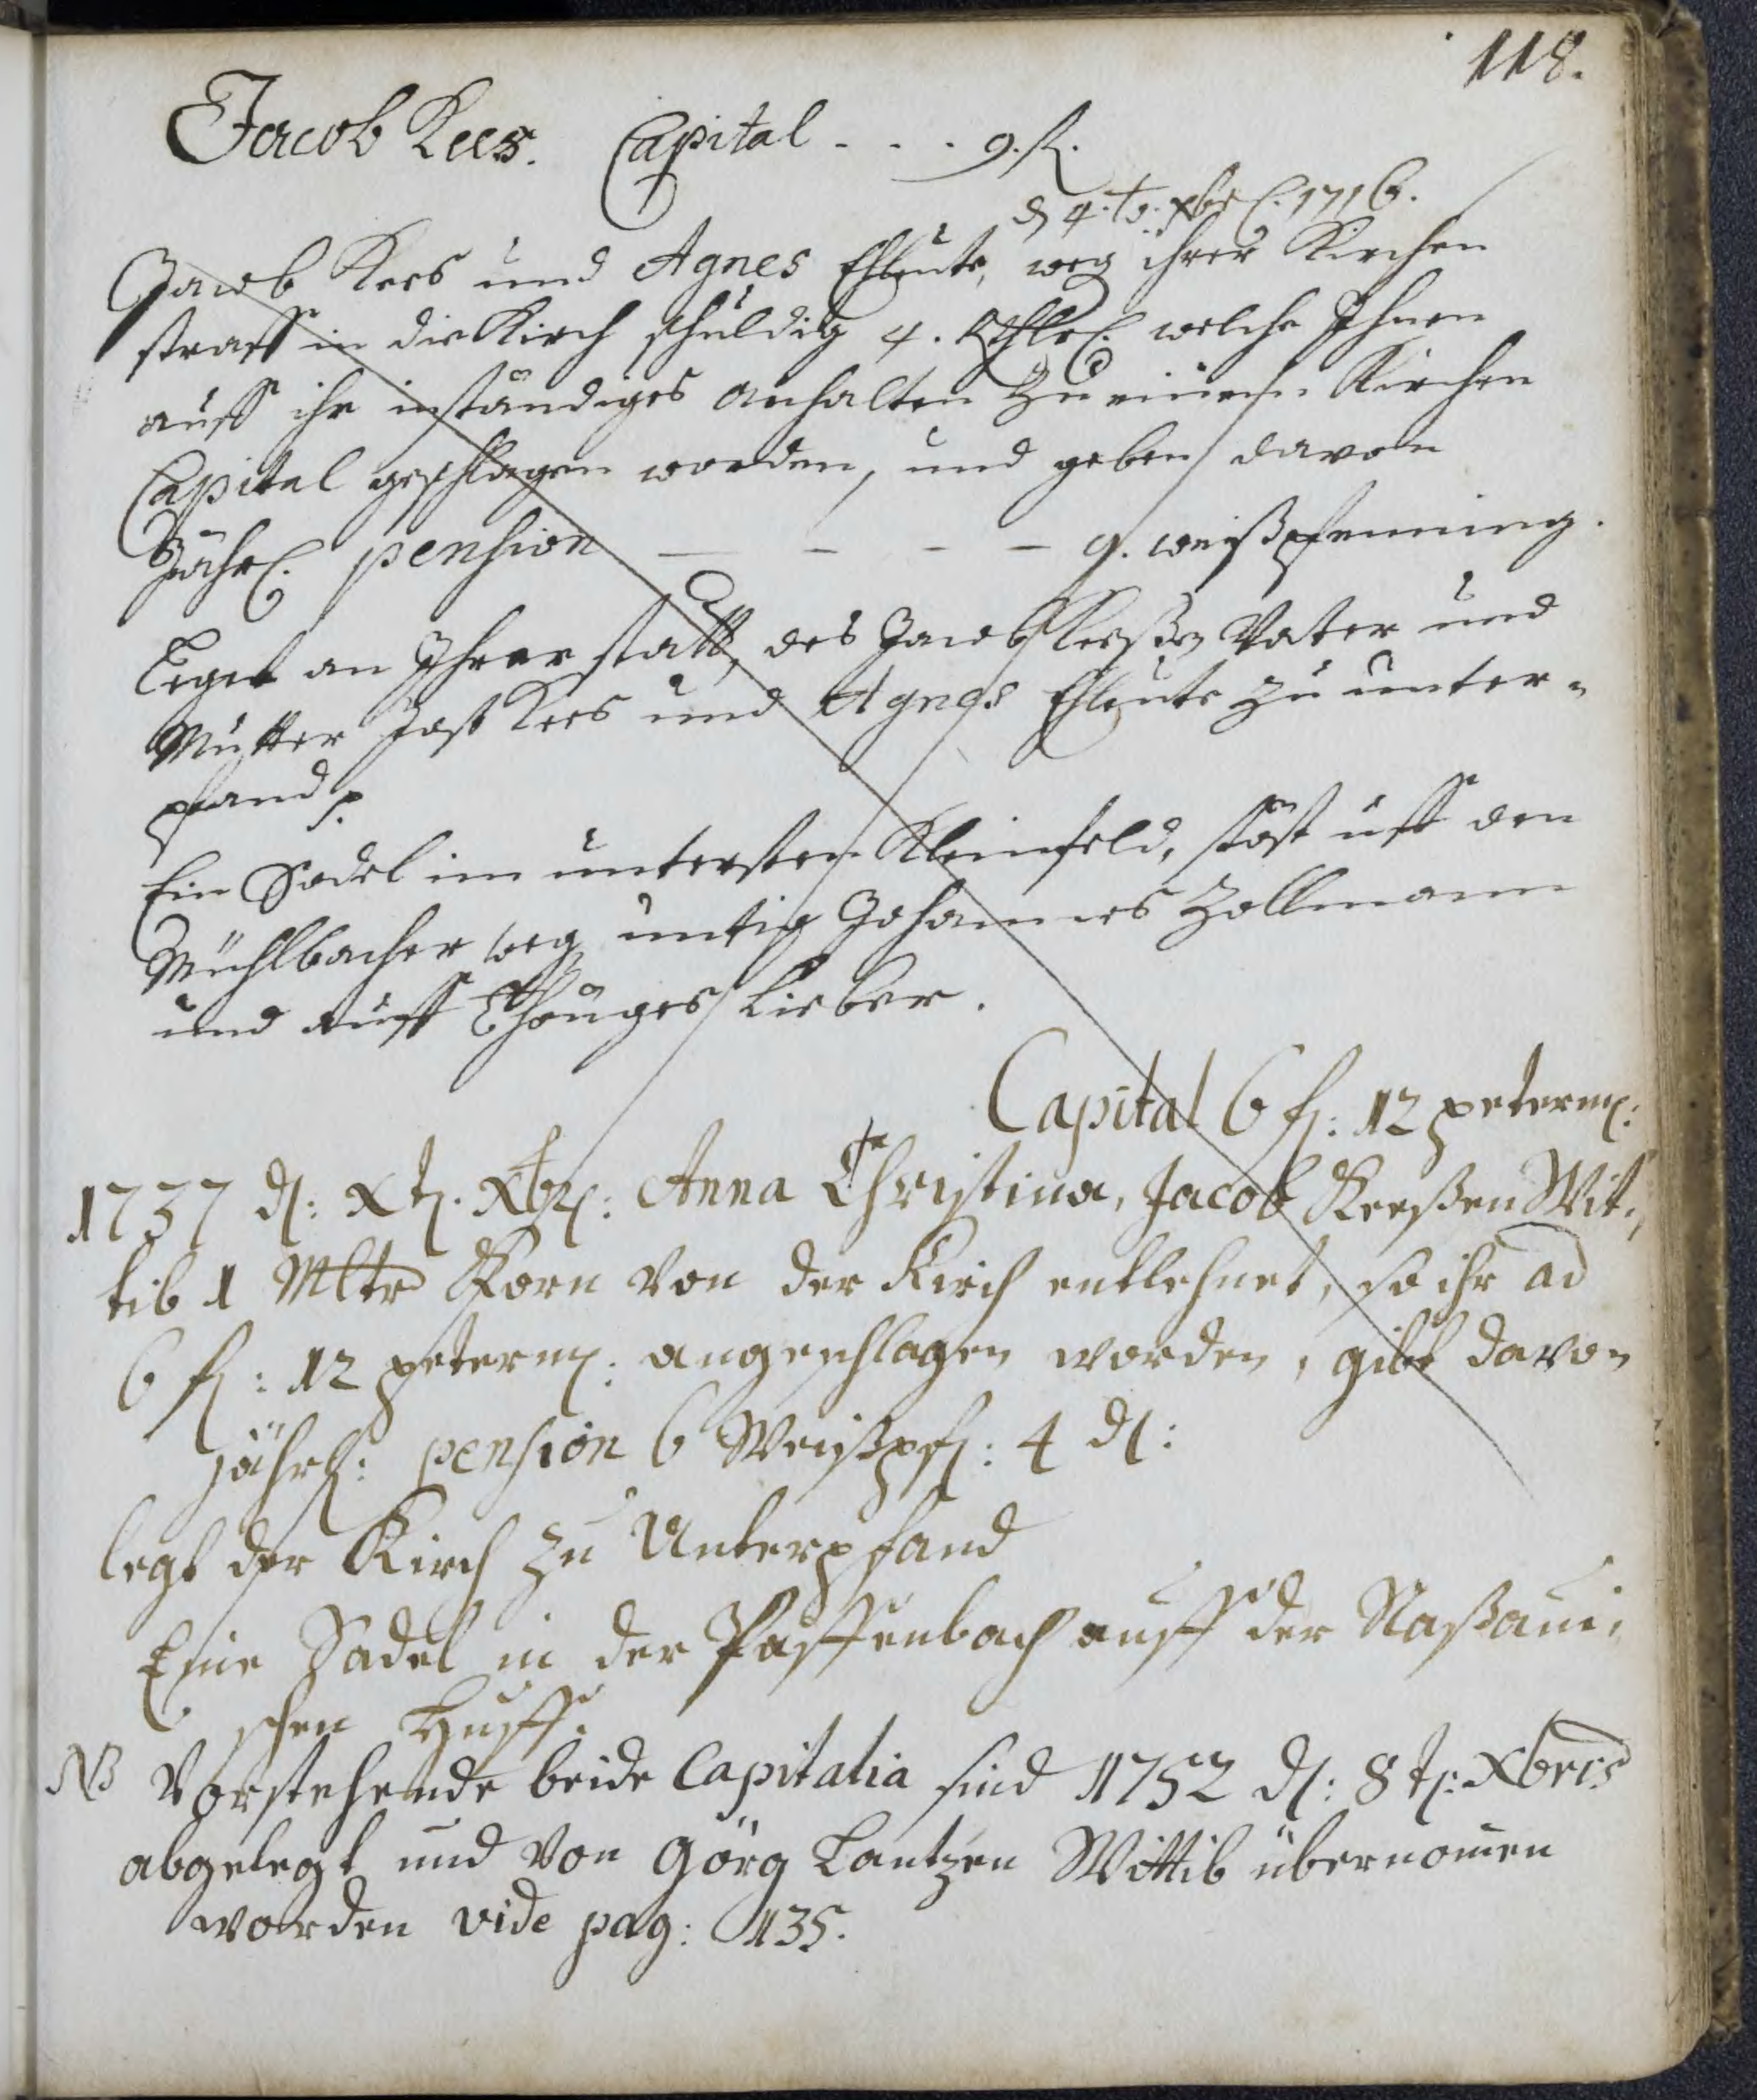 118.
Jacob Kees. Capital - - . 9. fl.
d 4.t. xbr. 1716.
Jacob Kees und Agnes Ehleute, weg ihrer Kirchen
straff in die Kirch schuldig 4. Rthlr. welche Ihnen
auff ihr inständiges anhalten Zu einem Kirchen
Capital geschlagen worden, und geben davon
Jährl. pension — — — — 9. weißpfenning.
Leget an Ihrer statt, des Jacob Keeßen Vater und
Mutter Jost Kees und Agnes Ehleute zu unter-
pfand
Ein Sadel im untersten Kleinfeld, stost uff den
Mühlbacher weg untig Johannes Zollmann
und auff Thönges Lieber.
Capital 6 fl: 12 peterm:
1737 d: X t. Xbr: Anna Christina, Jacob Keeßen Wit-
tib 1 Mltr Korn von der Kirch entlehnet, so ihr ad
6 fl: 12 peterm: angeschlagen worden, gibt davon
jährl: pension 6 Weißpf: 4 d:
legt der Kirch zu Unterpfand
Eine Sadel in der Paffenbach auff der Naßaui-
schen Huff.
NB Vorstehende beide Capitalia sind 1752 d: 8 t: Xbris
abgelegt und von Görg Lantzen Wittib übernomen
worden vide pag: 135.